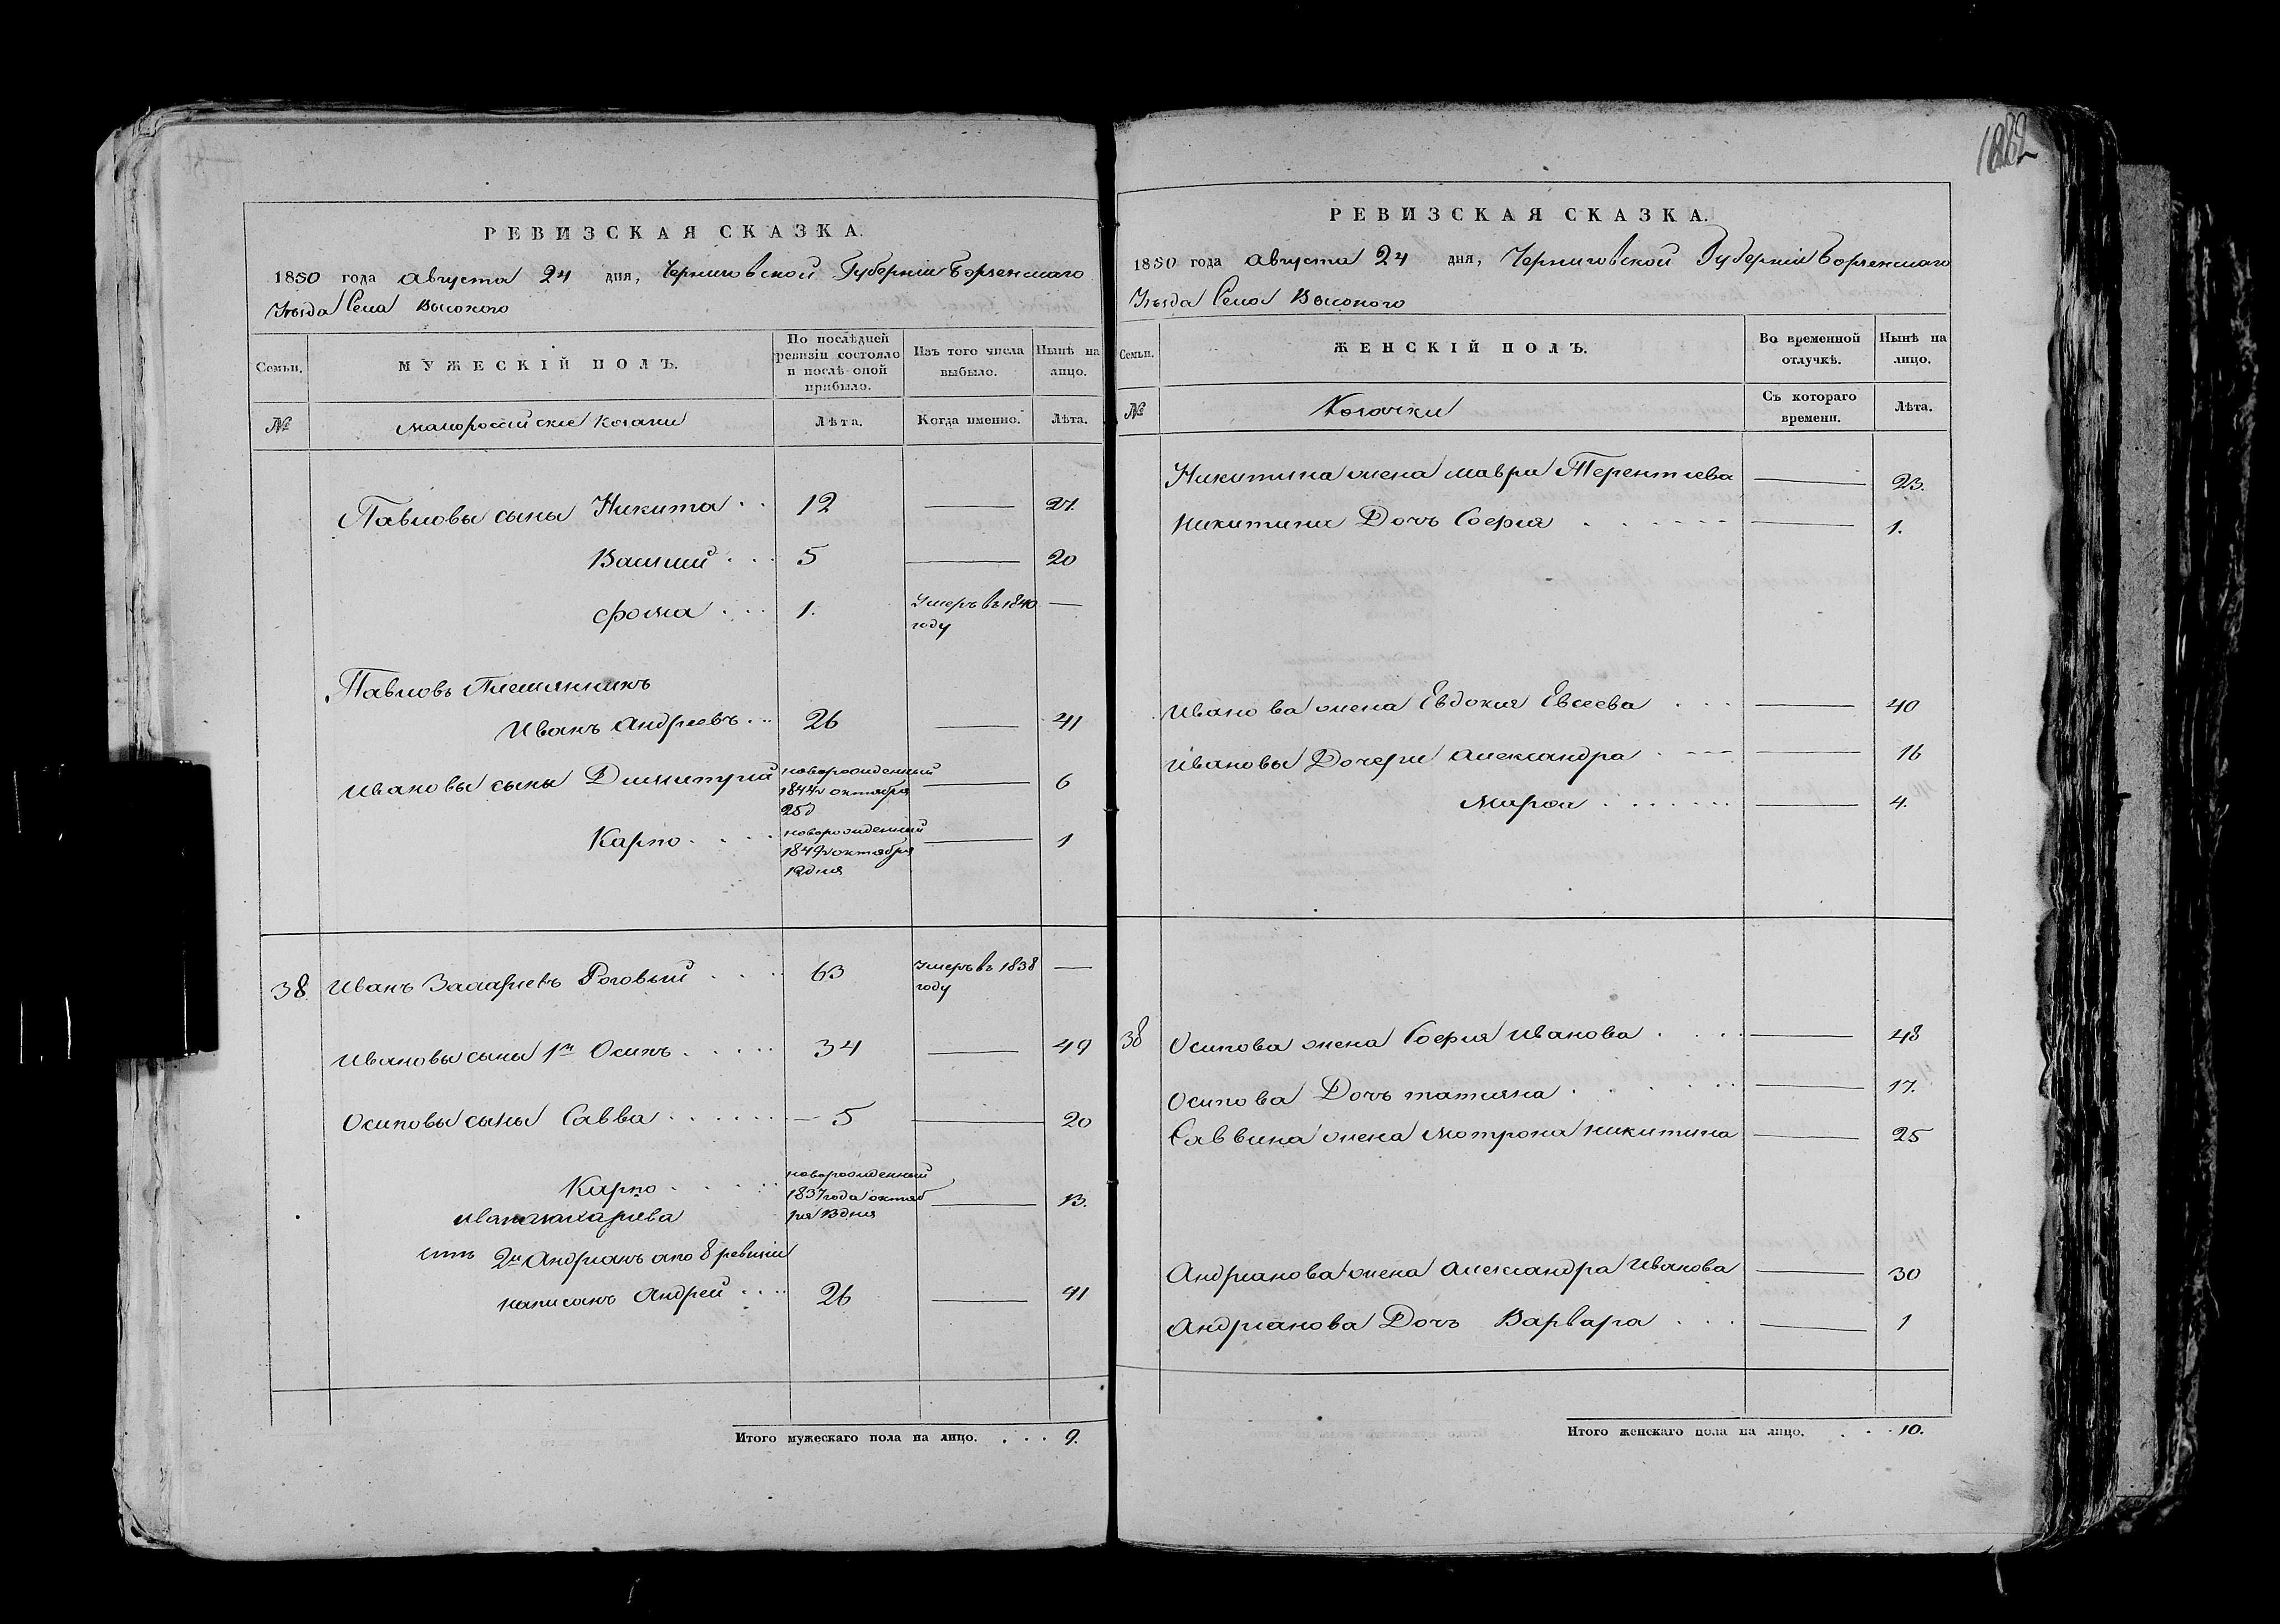 РЕВИЗСКАЯ СКАЗКА.
1850 года августа 24 дня, Черниговской Губерніи Борзенскаго
Уѣзда Села Высокого
Семьи.
МУЖЕСКІЙ ПОЛЪ.
По послѣдней ревизіи состояло и послѣ оной прибыло.
Изъ того числа выбыло.
Нынѣ на лицо.
№
малороссійские козаки
Лѣта.
Когда именно.
Лѣта.
Павловы сыны Никита . . 12 — 27.
Василий . . . 5 — 20
Фома . . . 1. Умеръ въ 1840 году —
Павловъ Племянникъ
Иванъ Андреевъ . . . 26 — 41
Ивановы сыны Димитрий новорожденный 1844 г октября 25 д — 6
Карпо . . . . новорожденный 1849 г октября 12 дня — 1
38 Иванъ Захариевъ Роговый . . . . 63 Умеръ въ 1838 году —
Ивановы сыны 1й Осипъ . . . . . 34 — 49
Осиповы сыны Савва . . . . . . — 5 — 20
Карпо . . . . . новорожденный 1837 года октяб ря 13 дня — 13.
Ивана Захариева
сынъ 2й Андрианъ а по 8 ревизіи
написанъ Андрей . . . . 26 — 41
Итого мужескаго пола на лицо. . . . 9.
РЕВИЗСКАЯ СКАЗКА.
1850 года августа 24 дня, Черниговской Губерніи Борзенскаго
Уѣзда Села Высокого
Семьи.
ЖЕНСКІЙ ПОЛЪ.
Во временной отлучкѣ.
Нынѣ на лицо.
№
Козачки
Съ котораго времени.
Лѣта.
Никитина жена Мавра Терентиева — 23.
Никитина Дочь София . . . . . — 1.
Иванова жена Евдокия Евсеева . . . — 40
Ивановы Дочери Александра . . . . — 16
Марфа . . . . . . . — 4.
38 Осипова жена София Иванова . . . . — 48
Осипова Дочь татияна . . . . . — 17.
Саввина жена Мотрона Никитина — 25
Андрианова жена Александра Иванова — 30
Андрианова Дочь Варвара . . . — 1
Итого женскаго пола на лицо. . . . 10.